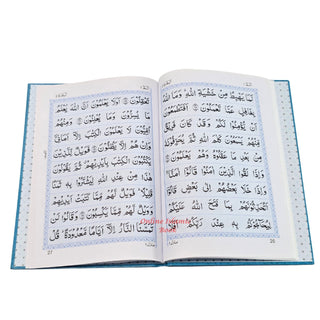 لَمَا يَهْبِطُ مِنْ خَشْيَةِ اللّٰهِ وَمَا اللّٰهُ
بِغَافِلٍ عَمَّا تَعْمَلُوْنَ اَفَتَطْمَعُوْنَ
اَنْ يُّؤْمِنُوْا لَكُمْ وَقَدْ كَانَ فَرِيْقٌ
مِّنْهُمْ يَسْمَعُوْنَ كَلٰمَ اللّٰهِ ثُمَّ يُحَرِّفُوْنَهٗ
مِنْۢ بَعْدِ مَا عَقَلُوْهُ وَهُمْ يَعْلَمُوْنَ
وَاِذَا لَقُوا الَّذِيْنَ اٰمَنُوْا قَالُوْۤا اٰمَنَّا
وَاِذَا خَلَا بَعْضُهُمْ اِلٰى بَعْضٍ قَالُوْۤا
اَتُحَدِّثُوْنَهُمْ بِمَا فَتَحَ اللّٰهُ عَلَيْكُمْ
لِيُحَآجُّوْكُمْ بِهٖ عِنْدَ رَبِّكُمْ اَفَلَا
26
تَعْقِلُوْنَ اَوَلَا يَعْلَمُوْنَ اَنَّ اللّٰهَ يَعْلَمُ
مَا يُسِرُّوْنَ وَمَا يُعْلِنُوْنَ وَمِنْهُمْ
اُمِّيُّوْنَ لَا يَعْلَمُوْنَ الْكِتٰبَ اِلَّاۤ اَمَانِيَّ
وَاِنْ هُمْ اِلَّا يَظُنُّوْنَ فَوَيْلٌ لِّلَّذِيْنَ
يَكْتُبُوْنَ الْكِتٰبَ بِاَيْدِيْهِمْ ثُمَّ يَقُوْلُوْنَ
هٰذَا مِنْ عِنْدِ اللّٰهِ لِيَشْتَرُوْا بِهٖ ثَمَنًا
قَلِيْلًا فَوَيْلٌ لَّهُمْ مِّمَّا كَتَبَتْ اَيْدِيْهِمْ
وَوَيْلٌ لَّهُمْ مِّمَّا يَكْسِبُوْنَ وَقَالُوْا لَنْ
تَمَسَّنَا النَّارُ اِلَّاۤ اَيَّامًا مَّعْدُوْدَةً قُلْ
27
Online Islamic
Book